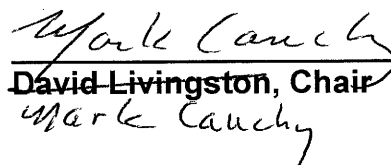 Mark Cauchy
David Livingston, Chair
Mark Cauchy